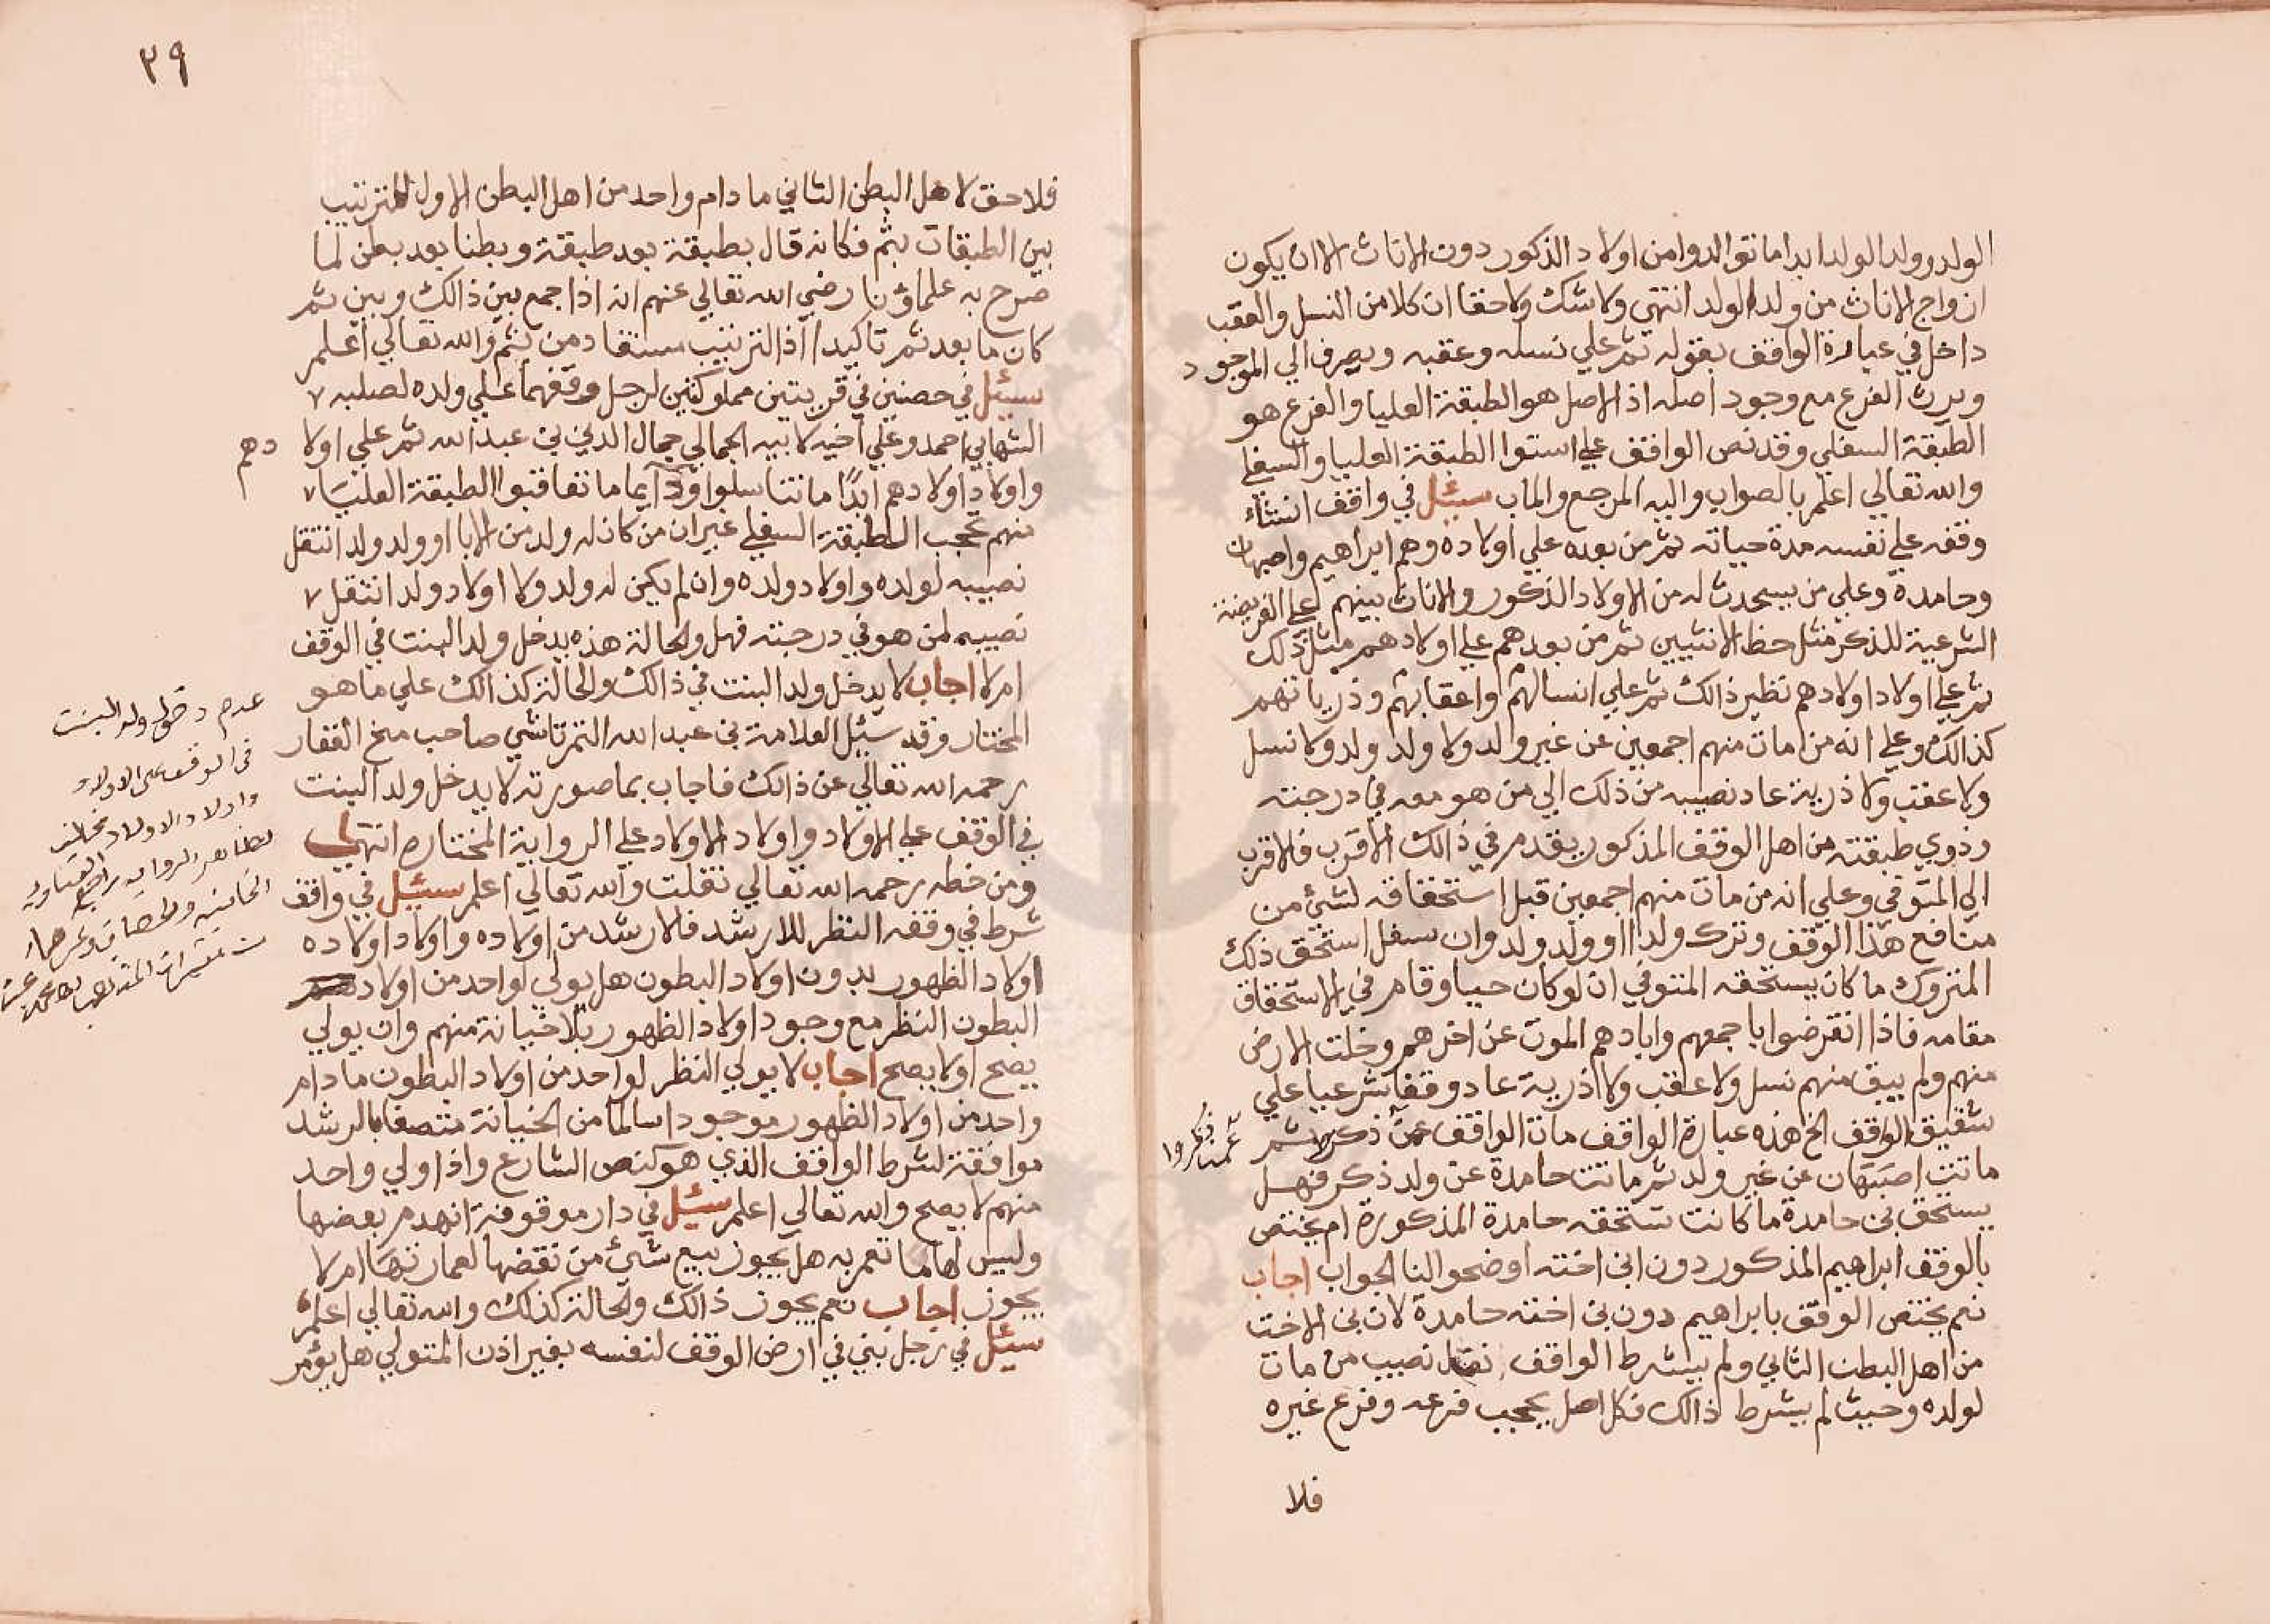 الولد وولد الولد ابدا ما توالدوا من اولاد الذكور دون الاناث الا ان يكون
ازواج الاناث من ولد الولد انتهى ولا شك ولا خفا ان كلا من النسل والعقب
داخل في عبارة الواقف بقوله ثم علي نسله وعقبه ويصرف الي الموجود
ويرث الفرع مع وجود اصله اذ الاصل هو الطبقة العليا والفرع هو
الطبقة السفلي وقد نص الواقف علي استوا الطبقة العليا والسفلي
والله تعالي اعلم بالصواب واليه المرجع والماب سئيل في واقف انشاء
وقفه علي نفسه مدة حياته ثم من بعده علي اولاده وهم ابراهيم واصبهان
وحامدة وعلي من يسحدث له من الاولاد الذكور والاناث بينهم علي الفريضة
الشرعية للذكر مثل حظ الانثيين ثم من بعدهم علي اولادهم مثل ذلك
ثم علي اولاد اولادهم نظير ذالك ثم علي انسالهم واعقابهم وذرياتهم
كذالك وعلي انه من مات منهم اجمعين عن غير ولد ولا ولد ولد ولا نسل
ولا عقب ولا ذرية عاد نصيبه من ذلك الي من هو معه في درجته
وذوي طبقته من اهل الوقف المذكور يقدم في ذالك الاقرب فالاقرب
الي المتوفي وعلي انه من مات منهم اجمعين قبل استحقاقه لشئ من
منافع هذا الوقف وترك ولدا او ولد ولد وان سفل استحق ذلك
المتروك ما كان يستحقه المتوفي ان لو كان حيا وقام في الاستحقاق
مقامه فاذا انقرضوا باجمعهم وابادهم الموت عن اخرهم وخلت الارض
منهم ولم يبق منهم نسل ولا عقب ولا ذرية عاد وقفا شرعيا علي
شقيق الواقف الخ هذه عبارة الواقف مات الواقف عمن ذكر ثم
عمن ذكروا
ماتت اصبهان عن غير ولد ثم ماتت حامدة عن ولد ذكر فهل
يستحق بن حامدة ما كانت تستحقه حامدة المذكورة ام يختص
بالوقف ابراهيم المذكور دون ابن اخته اوضحوا لنا الجواب اجاب
نعم يختص الوقف بابراهيم دون بن اخته حامدة لان بن الاخت
من اهل البطن الثاني ولم يشرط الواقف نقل نصيب من مات
لولده وحيث لم يشرط ذالك فكل اصل يحجب فرعه وفرع غيره
فلا
٢٩
فلا حق لاهل البطن الثاني ما دام واحد من اهل البطن الاول للترتيب
بين الطبقات بثم فكانه قال بطبقة بعد طبقة وبطنا بعد بطن لما
صرح به علماؤنا رضي الله تعالي عنهم انه اذا جمع بين ذالك وبين ثم
كان ما بعد ثم تاكيدا اذ الترتيب مستفاد من ثم والله تعالي اعلم
سئيل في حصتين في قريتين مملوكتين لرجل وقفهما علي ولده لصلبه
الشهابي احمد وعلي اخيه لابيه الجمالي جمال الدين بن عبد الله ثم علي اولادهم
واولاد اولادهم ابدًا ما تناسلوا ودآيما ما تعاقبوا الطبقة العليا
منهم تحجب الطبقة السفلي غير ان من كان له ولد من الابا او ولد ولد انتقل
نصيبه لولده واولاد ولده وان لم يكن له ولد ولا اولاد ولد انتقل
نصيبه لمن هو في درجته فهل والحالة هذه يدخل ولد البنت في الوقف
ام لا اجاب لا يدخل ولد البنت في ذالك والحالة كذالك علي ما هو
المختار وقد سئيل العلامة بن عبد الله التمرتاشي صاحب منح الغفار
رحمه الله تعالي عن ذالك فاجاب بما صورته لا يدخل ولد البنت
في الوقف علي الاولاد واولاد الاولاد علي الرواية المختاره انتهي
ومن خطه رحمه الله تعالي نقلت والله تعالي اعلم سئيل في واقف
شرط في وقفه النظر للارشد فالارشد من اولاده واولاد اولاده
اولاد الظهور بدون اولاد البطون هل يولي لواحد من اولاد
البطون النظر مع وجود اولاد الظهور بلا خيانة منهم وان يولي
يصح او لا يصح اجاب لا يولي النظر لواحد من اولاد البطون ما دام
واحد من اولاد الظهور موجودا سالما من الخيانة متصفا بالرشد
موافقة لشرط الواقف الذي هو كنص الشارع واذا ولي واحد
منهم لا يصح والله تعالي اعلم سئيل في دار موقوفة انهدم بعضها
وليس لها ما تعمر به هل يجوز بيع شئ من نقضها لعمارتها ام لا
يجوز اجاب نعم يجوز ذالك والحالة كذلك والله تعالي اعلم
سئيل في رجل بني في ارض الوقف لنفسه بغير اذن المتولي هل يؤمر
عدم دخول ولد البنت
في الوقف على الاولاد
واولاد الاولاد
لظاهر الرواية راجع الفتاوى
الخانية والخصاف وغيرهما